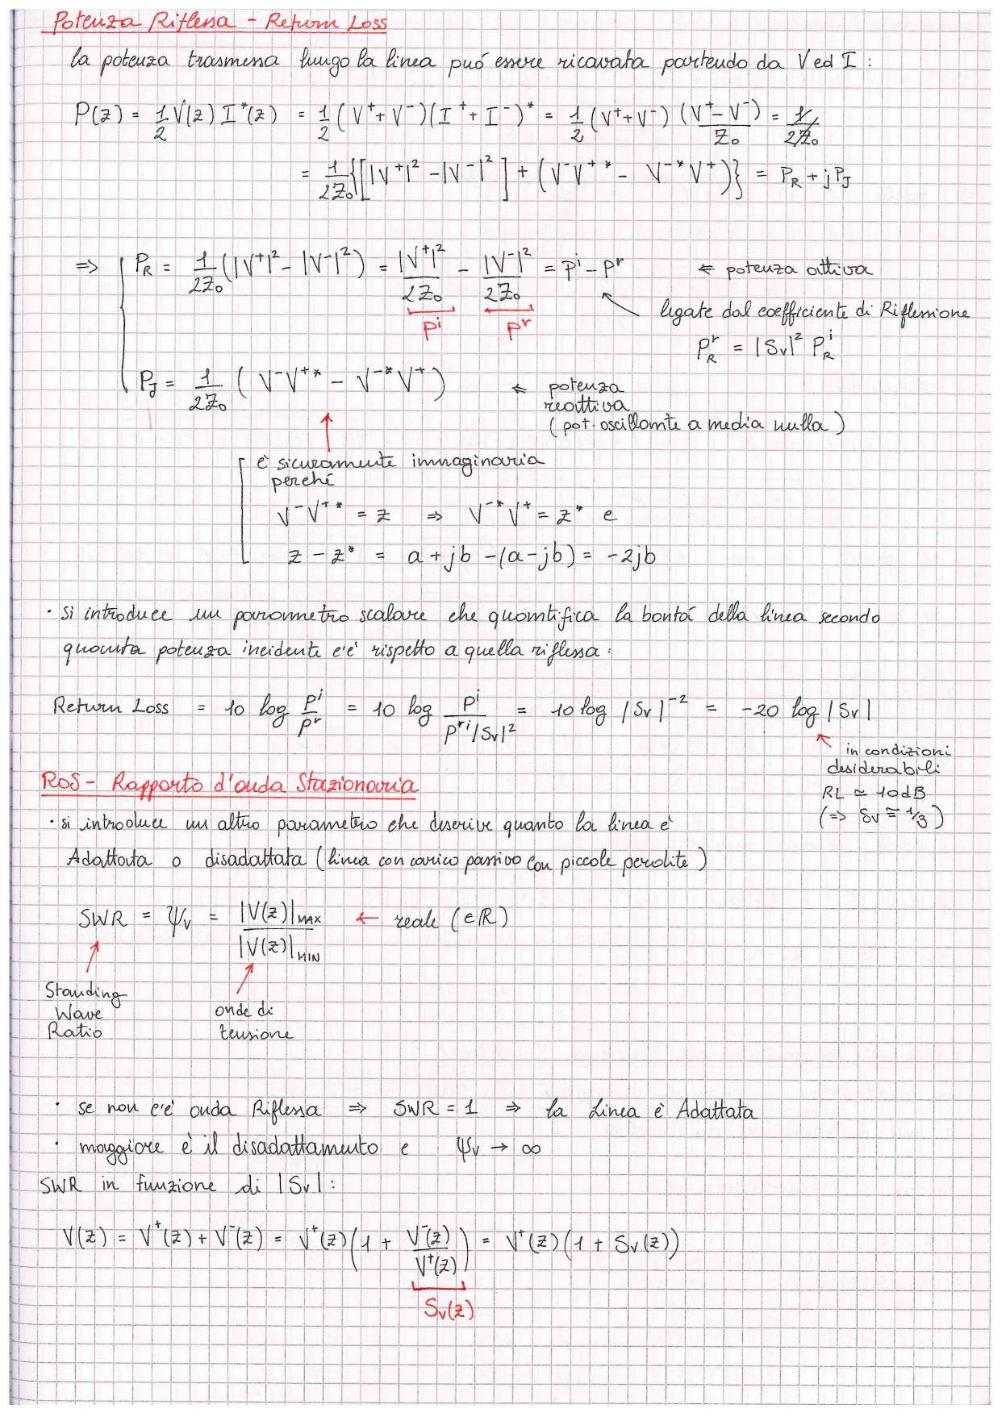 Potenza Riflessa - Return Loss
la potenza trasmessa lungo la linea può essere ricavata partendo da V ed I :
P(z) = 1/2 V(z) I*(z) = 1/2 (V⁺+V⁻)(I⁺+I⁻)* = 1/2 (V⁺+V⁻) (V⁺-V⁻)/Z₀ = 1/2Z₀
= 1/2Z₀ {[|V⁺|² - |V⁻|²] + (V⁻V⁺* - V⁻*V⁺)} = P_R + jP_J
=> P_R = 1/2Z₀ (|V⁺|² - |V⁻|²) = |V⁺|²/2Z₀ - |V⁻|²/2Z₀ = Pⁱ - Pʳ ← potenza attiva
Pⁱ Pʳ
ligate dal coefficiente di Riflessione
P_R^r = |Sv|² P_R^i
P_J = 1/2Z₀ ( V⁻V⁺* - V⁻*V⁺) ← potenza
reattiva
( pot. oscillante a media nulla )
è sicuramente immaginaria
perché
V⁻V⁺* = z => V⁻*V⁺ = z* e
z - z* = a + jb - (a - jb) = -2jb
· si introduce un parametro scalare che quantifica la bontà della linea secondo
quanta potenza incidente c'è rispetto a quella riflessa :
Return Loss = 10 log Pⁱ/Pʳ = 10 log Pⁱ/Pʳⁱ|Sv|² = 10 log |Sv|⁻² = -20 log |Sv|
in condizioni
desiderabili
RL ≃ 10dB
(=> Sv ≅ 1/3 )
ROS - Rapporto d'onda Stazionaria
· si introduce un altro parametro che descrive quanto la linea è
Adattata o disadattata ( linea con carico passivo con piccole perdite )
SWR = ψv = |V(z)|MAX / |V(z)|MIN ← reale (∈ℝ)
Standing
Wave
Ratio
onde di
tensione
· se non c'è onda Riflessa => SWR = 1 => la Linea è Adattata
· maggiore è il disadattamento e ψv → ∞
SWR in funzione di |Sv| :
V(z) = V⁺(z) + V⁻(z) = V⁺(z) (1 + V⁻(z)/V⁺(z)) = V⁺(z) (1 + Sv(z))
Sv(z)